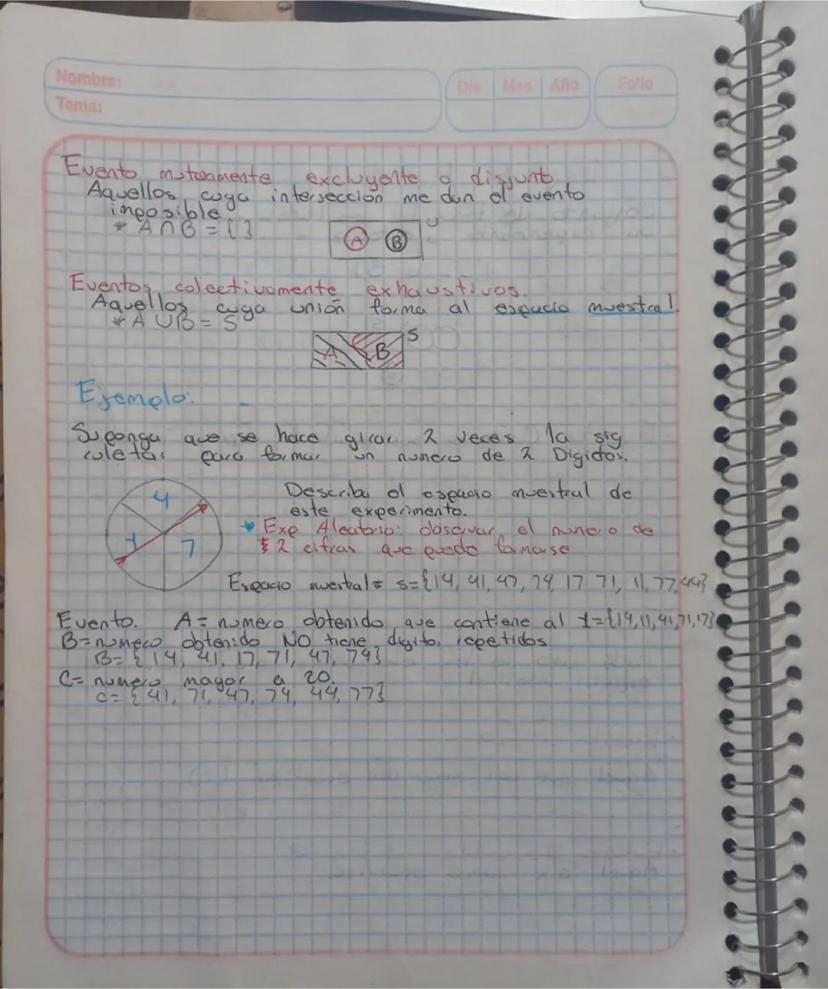 Nombre:
Tema:
Día Mes Año
Folio
Evento mutuamente excluyente o disjunto
Aquellos cuya intersección me dan el evento
imposible
* A∩B = { }
A B U
Eventos colectivamente exhaustivos.
Aquellos cuya unión forma al espacio muestral
* A∪B = S
A B S
Ejemplo:
Suponga que se hace girar 2 veces la sig
ruleta: para formar un numero de 2 Digitos.
4
1 7
Describa el espacio muestral de
este experimento.
* Exp Aleatorio: observar el numero de
2 cifras que puede formarse
Espacio muestral = S={14, 41, 47, 74, 17 71, 11, 77, 44}
Evento. A = numero obtenido que contiene al 1={14,11,41,71,17}
B=numero obtenido NO tiene digito repetidos
B= { 14, 41, 17, 71, 47, 74}
C= numero mayor a 20.
C= { 41, 71, 47, 74, 44, 77}